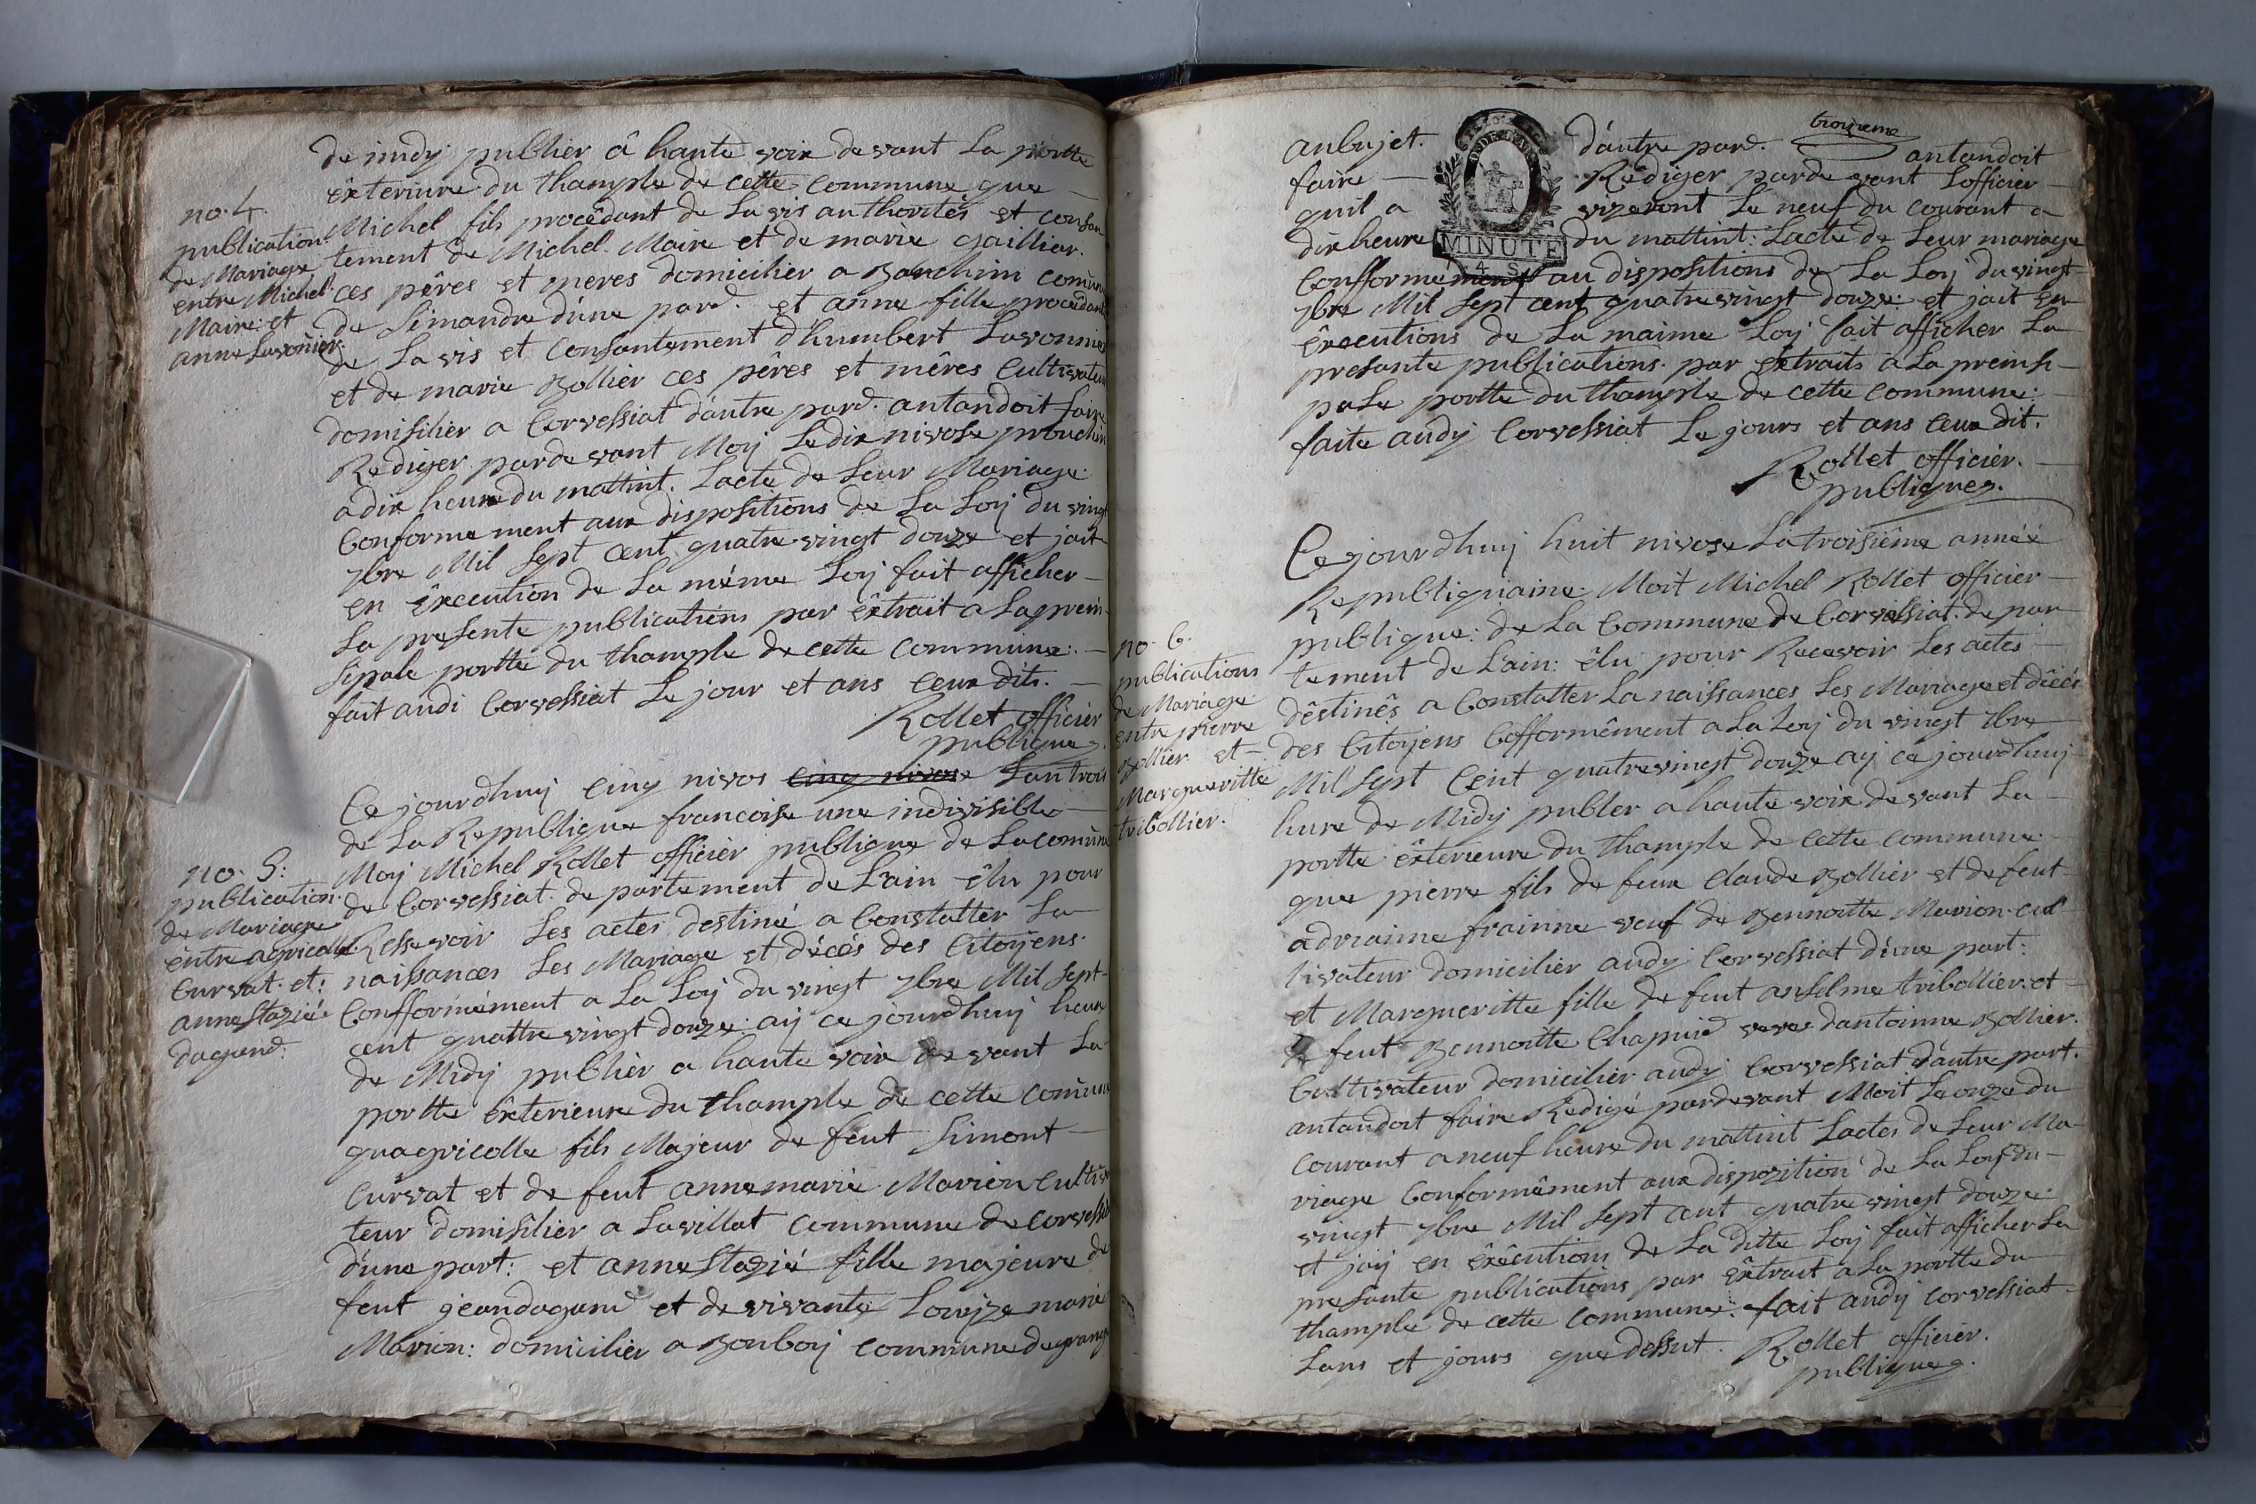 de midy publier â haute voix devant La portte
êxteriure du thample de cette commune que
no. 4.
publication:
de Mariage
entre Michel
Maire: et
anne Lavonier.
Michel fils procêdant de Lavis authorités et consan
tement de Michel Maire et de marie gaillier.
ces pêres et meres domicilier a Banchin comune
de Simandre d'une pard. et anne fille procêdant
de Lavis et Consantement d'humbert Lavonnier
et de marie Bollier ces pêres et mêres Cultivateur
domisilier a Corvessiat d'autre pard. antandoit faire
Rediger pardevant Moy Le dix nivose prouchin
a dix heure du mattint. Lacte de Leur Mariage.
Conformement aux dispositions de La Loy du vingt
7bre Mil Sept cent quatre vingt douze et jait
en êxecution de La même Loy fait afficher
La presente publications par êxtrait a La prein
sipale portte du thample de cette commune.
fait audi Corvessiat Le jour et ans ceux dits.
Rollet officier
publique
Ce jourdhuy cinq nivos cinq nivose Lan trois
de La Republique francoise une indivisible
no. 5:
publication.
de Mariage
êntre agricolle
Curvat. et:
annestazié
dagand.
Moy Michel Rollet officier publique de La comune
de Corvessiat. de partement de L'ain êlu pour
Ressevoir Les actes destiné a Constatter La
naissances Les Mariage et décés des Citoyens.
Confformément a La Loy du vingt 7bre Mil Sept
cent quattre vingt douze: ay ce jourdhuy heure
de Midy publier a haute voix devant La
portte êxterieure du thample de cette comune
quagricolle fils Majeur de feut Simont
Curvat et de feut annemarie Marion Cultiva
teur domisilier a Lavillat commune de corvessiat
d'une part: et annestazié fille majeure de
feut jeandagand et de vivante Louize marie
Marion: domicilier a Bonboy commune de grange
aubujet. d'autre pard. troizieme antandoit
faire Rediger pardevant Lofficier
quil a vizeront Le neuf du courant a
dix heure MINUTE du mattint: Lacte de Leur mariage
4 S
Confformément au dispositions de La Loy du vingt
7bre Mil Sept cent quatre vingt douze: et jait en
êxecutions de La maime Loy fait afficher La
presante publications. par extraits a La preinsi
pale portte du thample de cette commune:
faite audy Corvessiat Le jours et ans ceux dit.
Rollet officier.
publique
Ce jourdhuy huit nivose La troisiême année
Republiquaine Moit Michel Rollet officier
no. 6.
publications
de Mariage
entre pierre
Bollier et
Margueritte
tribollier.
publique: de La Commune de Corvessiat. de par
tement de L'ain: êlu pour Recevoir Les actes
dêstinês a Constatter La naissances Les Mariage et dêcés
des Citoyens Cofformêment a La Loy du vingt 7bre
Mil Sept Cent quatre vingt douze ay ce jourdhuy
hure de Midy publer a haute voix devant La
portte êxterieure du thample de cette commune
que pierre fils de feux Claude Bollier et de feut
adrianne frainne veuf de Bennoitte Marion. cul
tivateur domicilier audy Corvessiat d'une part:
et Margueritte fille de feut anselme tribollier: et
de feut Bennoitte Chapuid veve dantoinne Bollier.
Cultivateur domicilier audy Corvessiat d'autre part.
antandoit faire Redigé pardevant Moit Le onze du
courant a neuf heure du mattint Lactes de Leur Ma
riage Conformêment aux disposition de La Loy du
vingt 7bre Mil Sept cent quatre vingt douze
et jay en êxêcutions de La ditte Loy fait afficher La
presante publications par êxtrait a La portte du
thample de cette commune: fait audy corvessiat
Lans et jours que dessut. Rollet officier.
publique